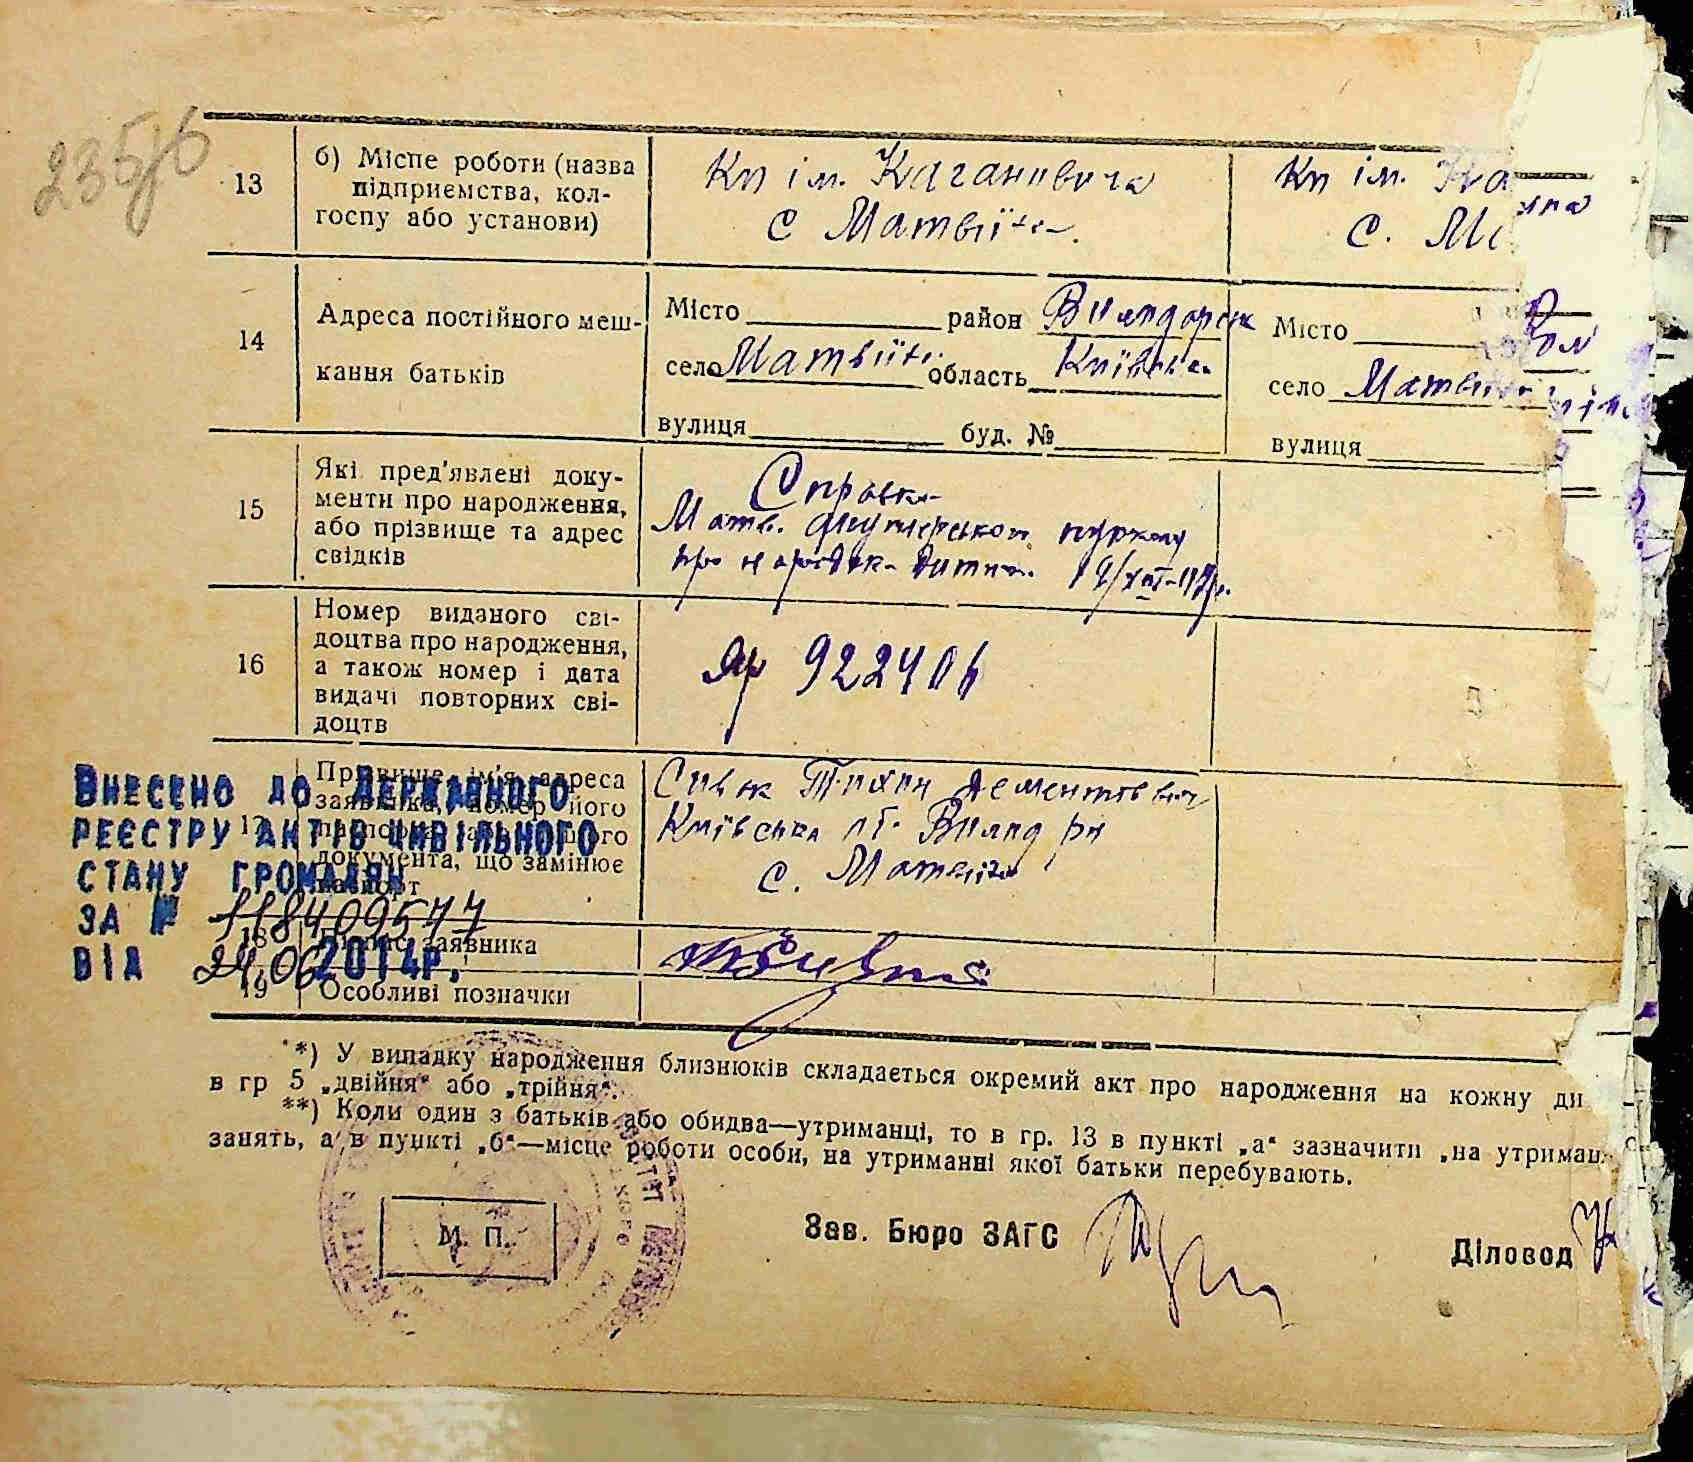 235/б
13
б) Місце роботи (назва
підприємства, кол-
госпу або установи)
Кп ім. Кагановича
с Матвіїх
Кп ім. Ка
с. Ма
14
Адреса постійного меш-
кання батьків
Місто район
село Матвіїх область Київськ
вулиця буд. №
Місто
село Матвії
вулиця
15
Які пред'явлені доку-
менти про народження,
або прізвище та адрес
свідків
Справка
Матв. акушерського пункту
про народж дитини
16
Номер виданого сві-
доцтва про народження,
а також номер і дата
видачі повторних сві-
доцтв
ЯР 922406
17
Прізвище, ім'я, адреса
заявника, номер його
паспорта або іншого
документа, що замінює
паспорт
Сивак Тихон Дементієвич
Київська об.
с. Матвіїх
18
Підпис заявника
19
Особливі позначки
Внесено до Державного
реєстру актів цивільного
стану громадян
за № 118409577
від 24.06 2014р.
*) У випадку народження близнюків складається окремий акт про народження на кожну ди
в гр 5 „двійня“ або „трійня“.
**) Коли один з батьків або обидва—утриманці, то в гр. 13 в пункті „а“ зазначити „на утриман
занять, а в пункті „б“—місце роботи особи, на утриманні якої батьки перебувають.
М. П.
Зав. Бюро ЗАГС
Діловод